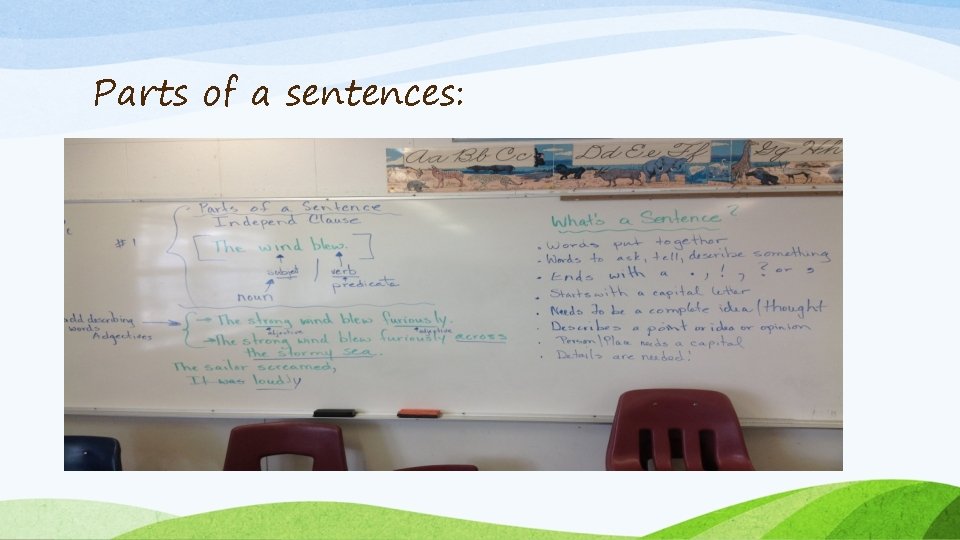 Parts of a sentences:
Aa Bb Cc Dd Ee Ff Gg Hh
Parts of a Sentence
Independ Clause
#1
[The wind blew.]
subject / verb
noun
predicate
add describing
words
Adgectives
→ The strong wind blew furiously.
adjective
→ The strong wind blew furiously across
the stormy sea.
The sailor screamed,
It was loudly
What's a Sentence?
• Words put together
• Words to ask, tell, describe something
• Ends with a . , ! , ? or
• Starts with a capital letter
• Needs to be a complete idea/thought
• Describes a point or idea or opinion
• Person/Place needs a capital
• Details are needed!